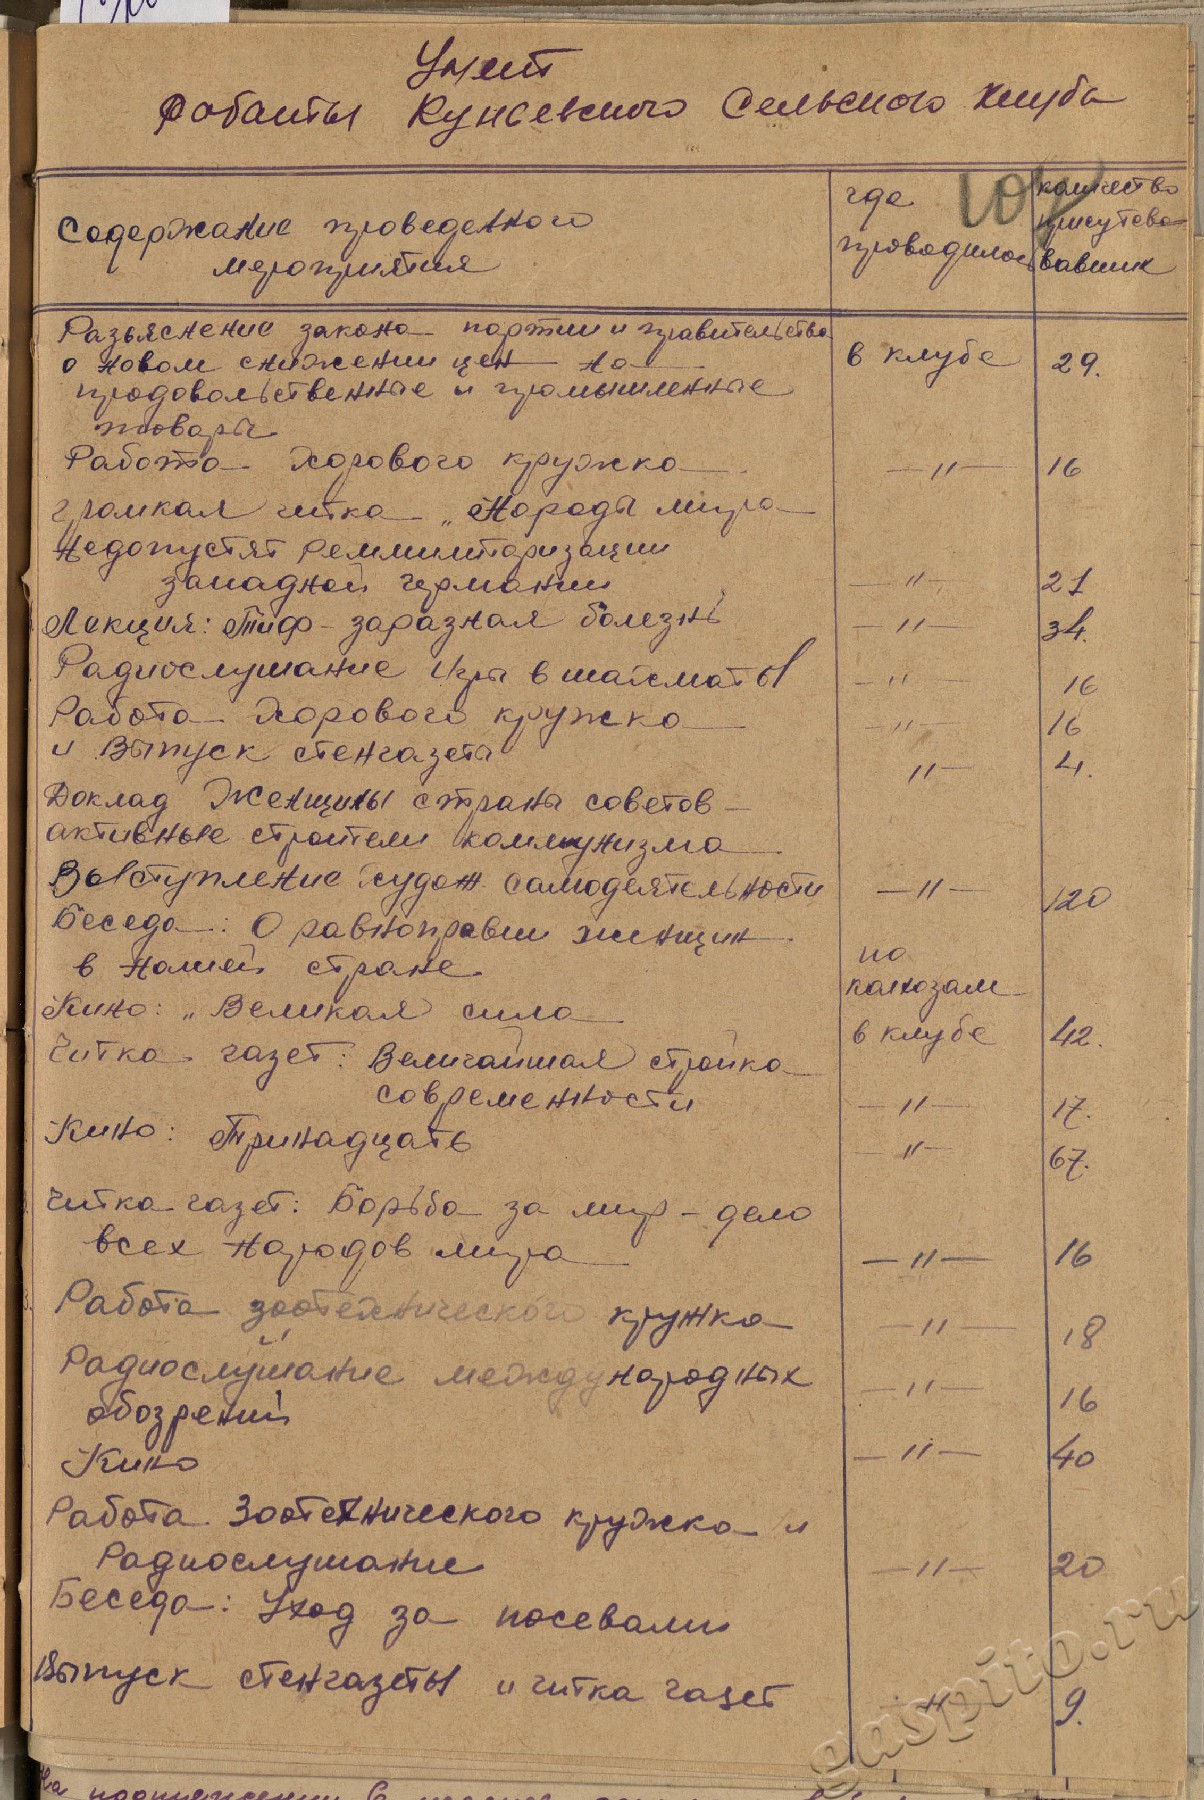 Учет
Работы Кунсевского Сельского клуба
Содержание проведенного
мероприятия
где
проводилось
количество
присутсво-
вавших
Разъяснение закона партии и правительства
о новом снижении цен на
продовольственные и промышленные
товары
в клубе
29.
Работа Хорового кружка
— " —
16
громкая читка „Народы мира
недопустят Реммилитаризации
западной германии
— " —
21
Лекция: Тиф - заразная болезнь
— " —
34.
Радиослушание Игры в шахматы
— " —
16
Работа Хорового кружка
— " —
16
и Выпуск стенгазеты
" —
4.
Доклад Женщины страны советов -
активные строители коммунизма
Выступление худож. самодеятельности
— " —
120
Беседа: О равноправии женщин
в нашей стране
по
колхозам
Кино: „Великая сила
в клубе
42.
Читка газет: Величайшая стройка
современности
— " —
17.
Кино: Тринадцать
— " —
67.
Читка газет: Борьба за мир - дело
всех народов мира
— " —
16
Работа зоотехнического кружка
— " —
18
Радиослушание международных
обозрений
— " —
16
Кино
— " —
40
Работа Зоотехнического кружка и
Радиослушание
— " —
20
Беседа: Уход за посевами
Выпуск стенгазеты и читка газет
— " —
9.
gaspito.ru